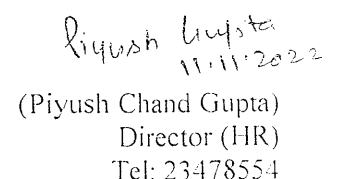 Piyush Gupta
11.11.2022
(Piyush Chand Gupta)
Director (HR)
Tel: 23478554